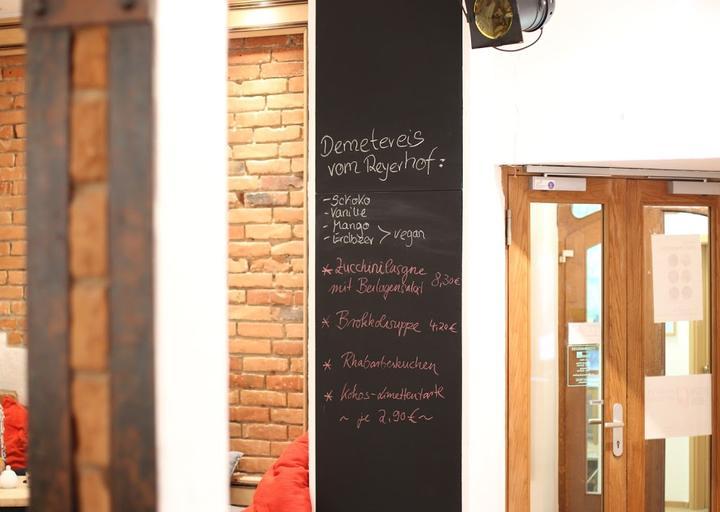 Demetereis
vom Reyerhof:
- Schoko
- Vanille
- Mango
- Erdbeer > vegan
* Zucchinilasagne
mit Beilagensalat 8,30€
* Brokkolisuppe 4,20€
* Rhabarberkuchen
* Kokos-Limettentarte
~ je 2,90€ ~